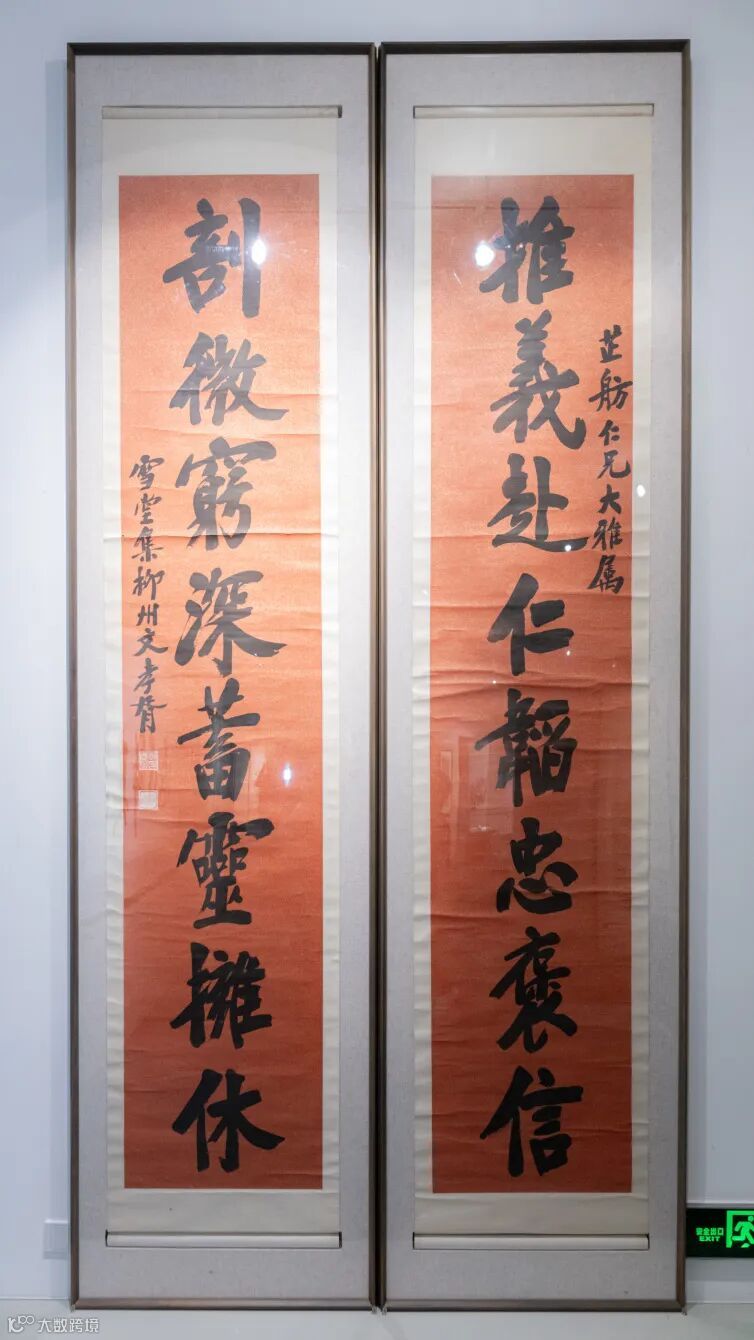 推義赴仁韜忠信
芷舫仁兄大雅属
剖微窮深蓄靈擁休
雪堂集柳州文孝胥
安全出口
EXIT
大数跨境